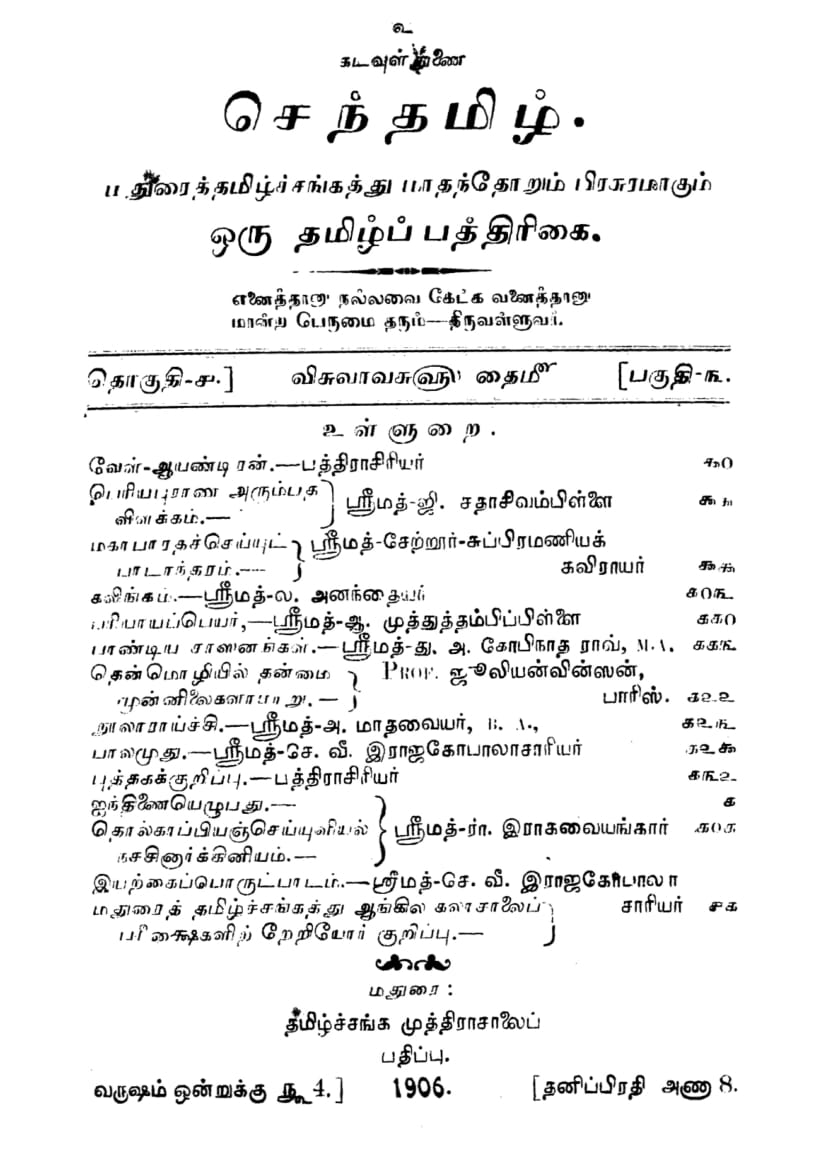 உ
கடவுள் துணை
செந்தமிழ்.
மதுரைத்தமிழ்ச்சங்கத்து மாதந்தோறும் பிரசுரமாகும்
ஒரு தமிழ்ப் பத்திரிகை.
எனைத்தானு நல்லவை கேட்க வனைத்தானு
மான்ற பெருமை தரும்—திருவள்ளுவர்.
தொகுதி-௪.] விசுவாவசு௵ தை௴ [பகுதி-௩.
உள்ளுறை.
வேள்-ஆயண்டிரன்.—பத்திராசிரியர்
பெரியபுராண அரும்பத
விளக்கம்.— } ஸ்ரீமத்-ஜி. சதாசிவம்பிள்ளை
மகாபாரதச்செய்யுட்
பாடாந்தரம்.— } ஸ்ரீமத்-சேற்றூர்-சுப்பிரமணியக்
கவிராயர் ௯௯
கலிங்கம்.—ஸ்ரீமத்-ல. அனந்தையர் ௧0௩
பரியாயப்பெயர்,—ஸ்ரீமத்-ஆ. முத்துத்தம்பிப்பிள்ளை ௧௧0
பாண்டிய சாஸனங்கள்.—ஸ்ரீமத்-து. அ. கோபிநாத ராவ், M.A. ௧௧௩
தென்மொழியில் தன்மை
முன்னிலைகளாமாறு.— } PROF. ஜூலியன்வின்ஸன்,
பாரிஸ். ௧௨௨
நூலாராய்ச்சி.—ஸ்ரீமத்-அ. மாதவையர், B. A., ௧௨௩
பாலமுது.—ஸ்ரீமத்-செ. வீ. இராஜகோபாலாசாரியர் ௧௨௯
புத்தகக்குறிப்பு.—பத்திராசிரியர் ௧௩௨
ஐந்திணையெழுபது.— ௧
தொல்காப்பியஞ்செய்யுளியல்
நச்சினார்க்கினியம்.— } ஸ்ரீமத்-ரா. இராகவையங்கார் ௧0௧
இயற்கைப்பொருட்பாடம்.—ஸ்ரீமத்-செ. வீ. இராஜகோபாலா
மதுரைத் தமிழ்ச்சங்கத்து ஆங்கில கலாசாலைப் } சாரியர் ௪௧
பரீக்ஷைகளிற் றேறியோர் குறிப்பு.—
மதுரை:
தமிழ்ச்சங்க முத்திராசாலைப்
பதிப்பு.
வருஷம் ஒன்றுக்கு ரூ 4.] 1906. [தனிப்பிரதி அணா 8.